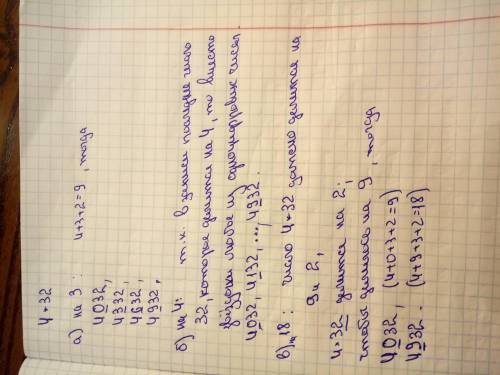 4*32
а) на 3: 4+3+2=9, тогда
4032,
4332,
4632,
4932,
б) на 4: т.к. в записи последнее число
32, которое делится на 4, то вместо
звёздочки любое из одноцифровых чисел.
4032, 4132, ..., 4932.
в) на 18: число 4*32 должно делится на
9 и 2,
4*32 делится на 2;
чтобы делилось на 9, тогда
4032, (4+0+3+2=9)
4932. (4+9+3+2=18)